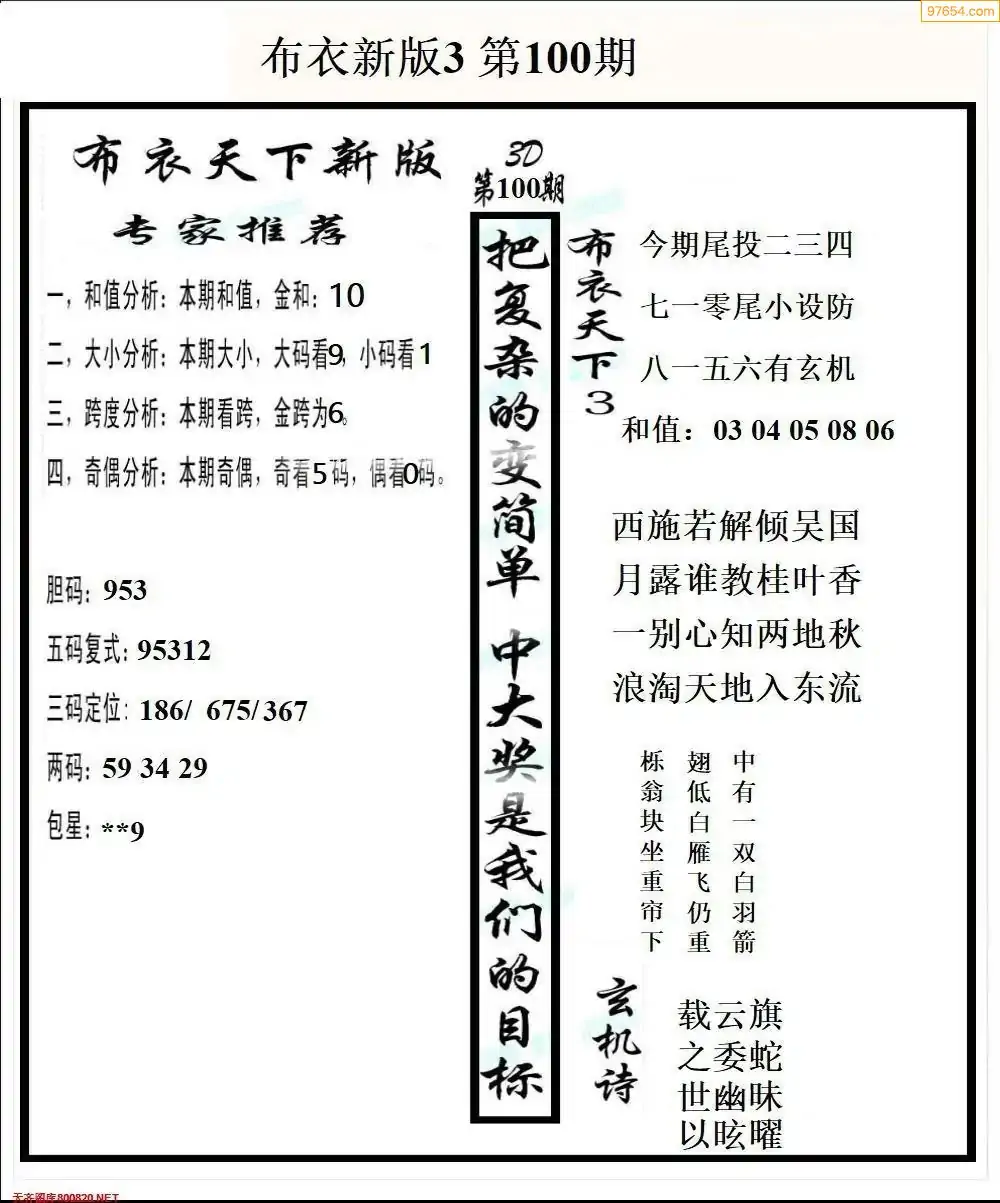 97654.com
布衣新版3 第100期
布衣天下新版
专家推荐
一，和值分析：本期和值，金和：10
二，大小分析：本期大小，大码看9，小码看1
三，跨度分析：本期看跨，金跨为6。
四，奇偶分析：本期奇偶，奇看5码，偶看0码。
胆码：953
五码复式：95312
三码定位：186/ 675/367
两码：59 34 29
包星：**9
3D
第100期
把复杂的变简单 中大奖是我们的目标
布衣天下3
今期尾投二三四
七一零尾小设防
八一五六有玄机
和值：03 04 05 08 06
西施若解倾吴国
月露谁教桂叶香
一别心知两地秋
浪淘天地入东流
中有一双白羽箭
翅低白雁飞仍重
栎翁块坐重帘下
玄机诗
载云旗
之委蛇
世幽昧
以眩曜
天齐图库800820.NET